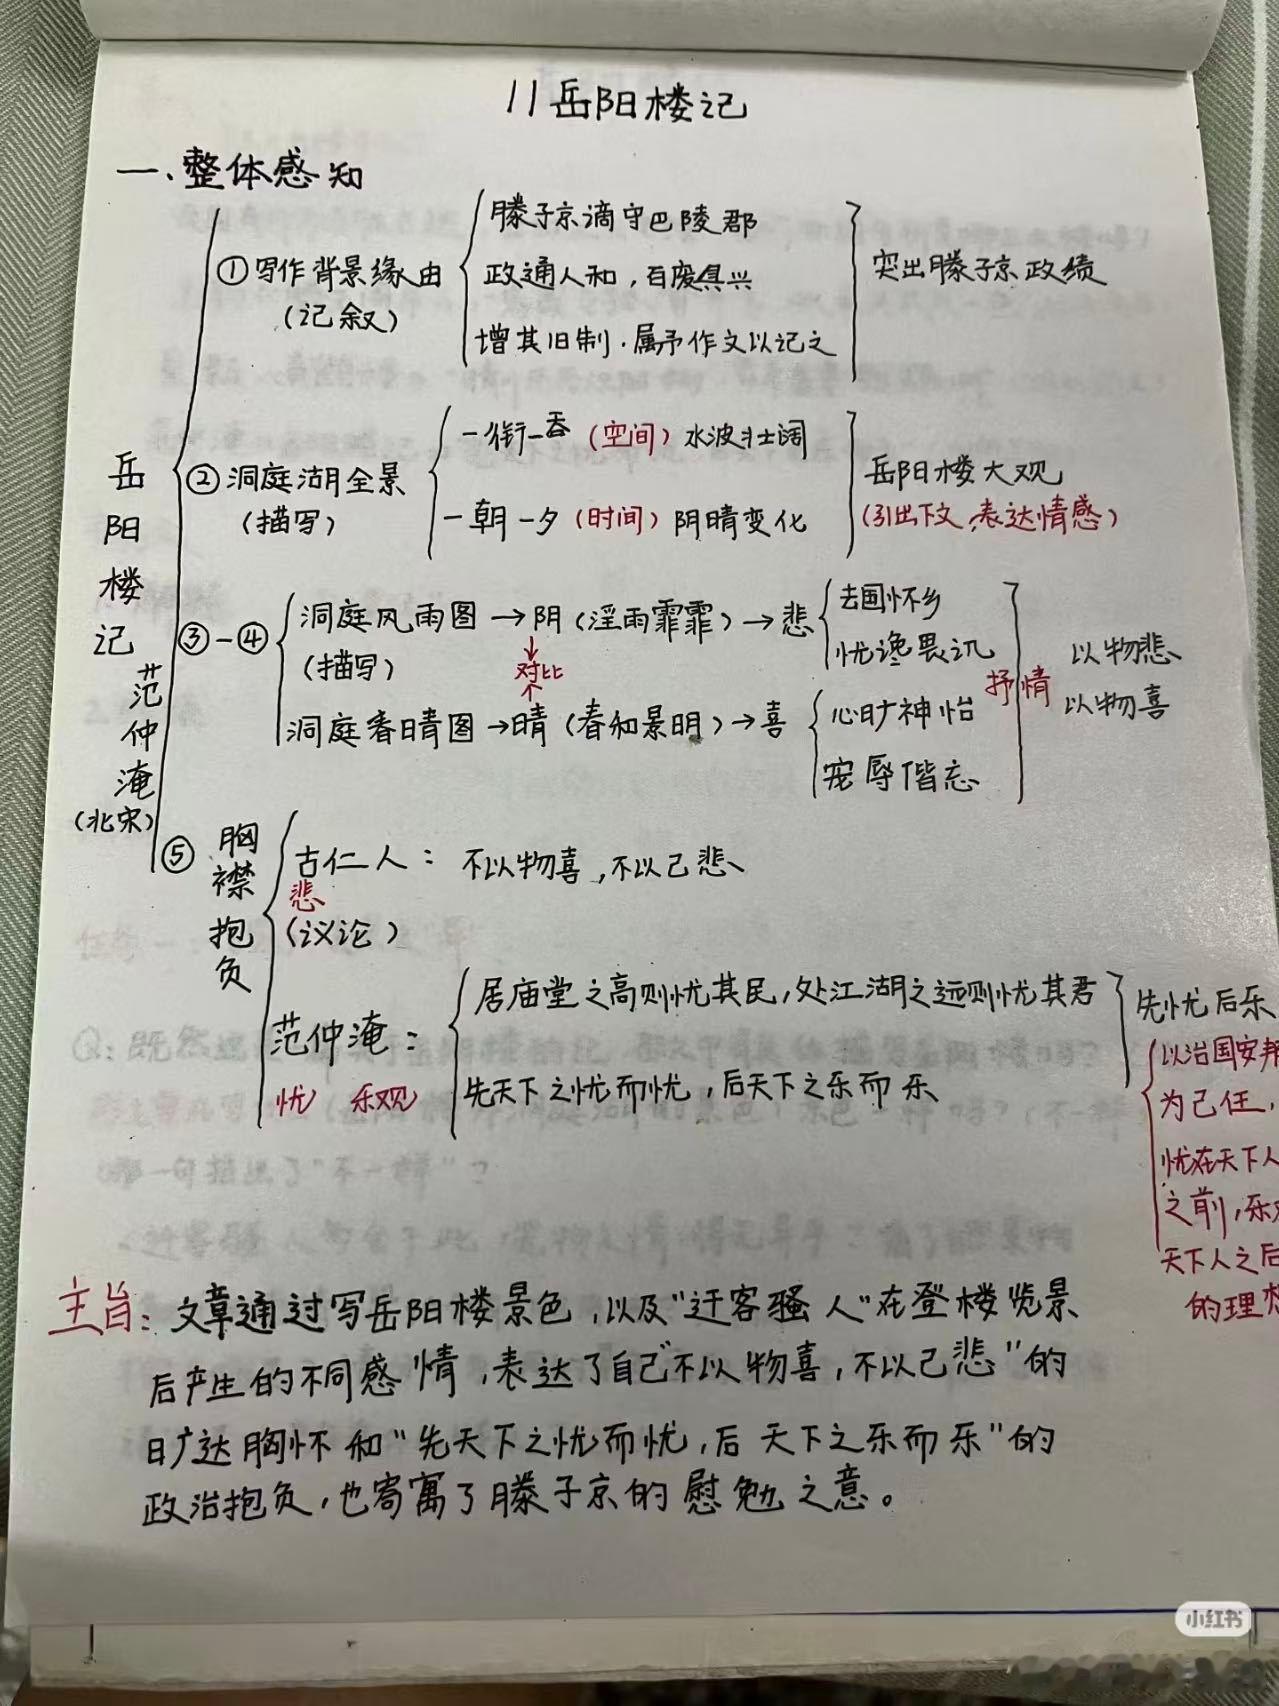 11岳阳楼记
一、整体感知
岳阳楼记
范仲淹
(北宋)
①写作背景缘由
(记叙)
滕子京谪守巴陵郡
政通人和，百废俱兴
增其旧制．属予作文以记之
突出滕子京政绩
②洞庭湖全景
(描写)
一衔一吞（空间）水波壮阔
一朝一夕（时间）阴晴变化
岳阳楼大观
(引出下文，表达情感)
③-④
洞庭风雨图→阴（淫雨霏霏）→悲
(描写)
↓
对比
↑
洞庭春晴图→晴（春和景明）→喜
去国怀乡
忧谗畏讥
心旷神怡
宠辱偕忘
抒情
以物悲
以物喜
⑤胸襟抱负
古仁人：不以物喜，不以己悲
悲
(议论)
范仲淹：
忧 乐观
居庙堂之高则忧其民，处江湖之远则忧其君
先天下之忧而忧，后天下之乐而乐
先忧后乐
以治国安邦
为己任，
忧在天下人
之前，乐
天下人之后
的理想
主旨：文章通过写岳阳楼景色，以及"迁客骚人"在登楼览景
后产生的不同感情，表达了自己"不以物喜，不以己悲"的
旷达胸怀和"先天下之忧而忧，后天下之乐而乐"的
政治抱负，也寄寓了滕子京的慰勉之意。
小红书